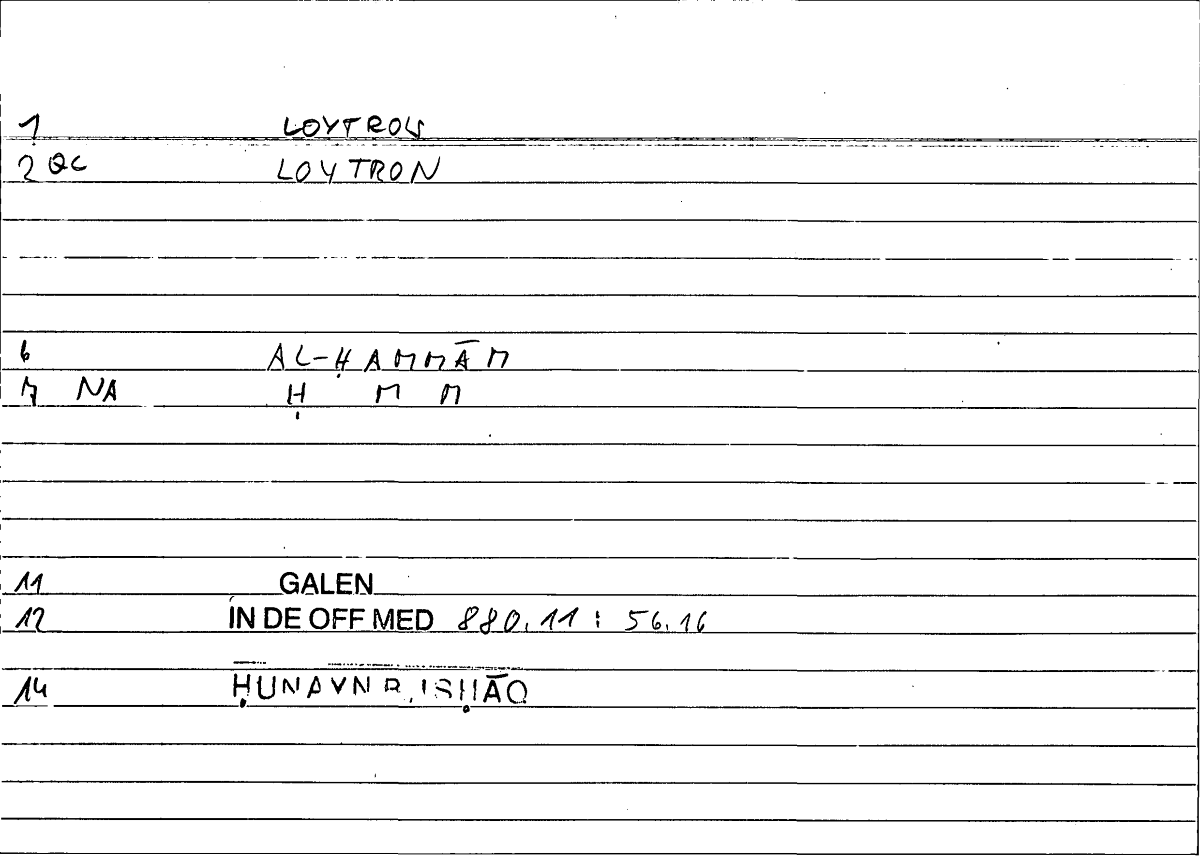 1 LOYTRON
2 QC LOYTRON
6 AL-ḤAMMĀM
7 NA Ḥ M M
11 GALEN
12 IN DE OFF MED 880.11 : 56.16
14 ḤUNAYN B. ISḤĀQ